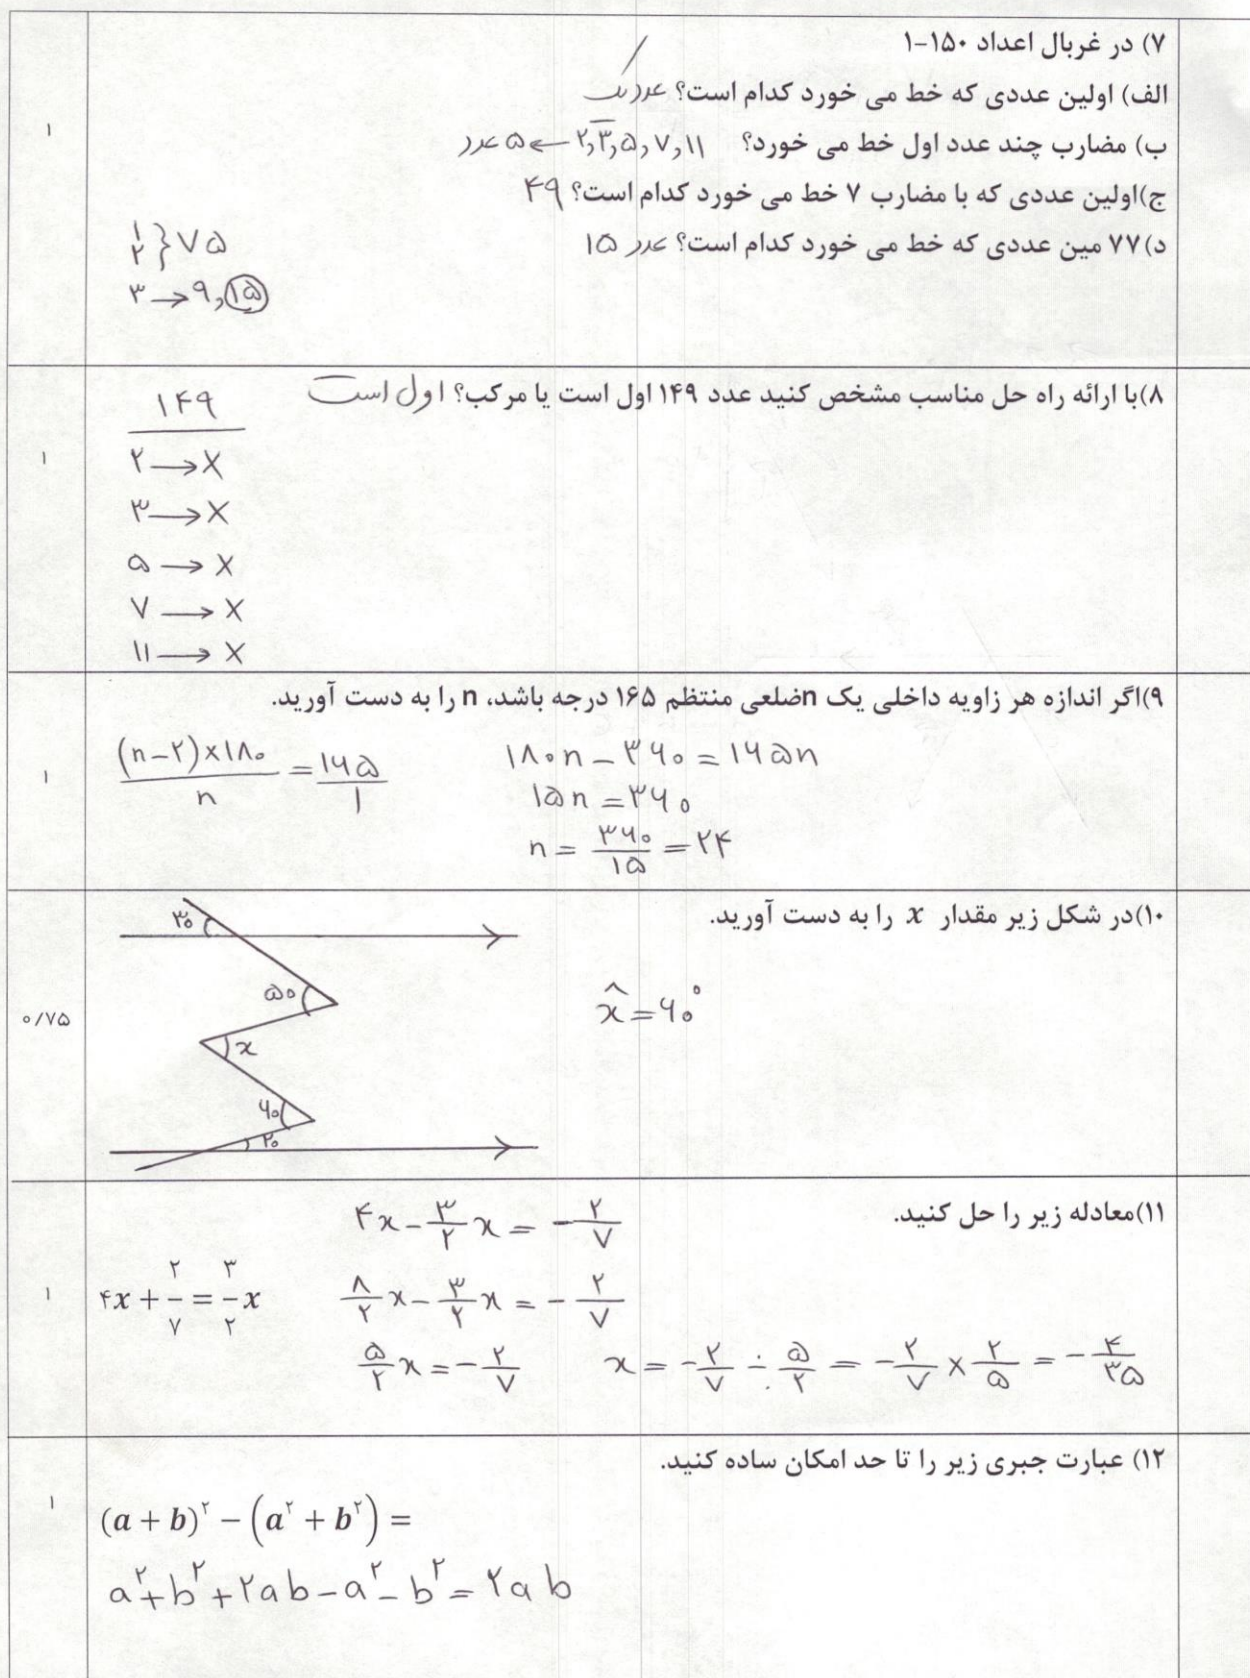 ۷) در غربال اعداد ۱۵۰-۱
الف) اولین عددی که خط می خورد کدام است؟ عدد یک
۱
ب) مضارب چند عدد اول خط می خورد؟ ۲,۳,۵,۷,۱۱ → ۵ عدد
ج)اولین عددی که با مضارب ۷ خط می خورد کدام است؟ ۴۹
د)۷۷ مین عددی که خط می خورد کدام است؟ عدد ۱۵
۱
۲ } ۷۵
۳ → ۹,۱۵
۸)با ارائه راه حل مناسب مشخص کنید عدد ۱۴۹ اول است یا مرکب؟ اول است
۱۴۹
۱
۲ → X
۳ → X
۵ → X
۷ → X
۱۱ → X
۹)اگر اندازه هر زاویه داخلی یک nضلعی منتظم ۱۶۵ درجه باشد، n را به دست آورید.
۱
(n-۲)×۱۸۰/n = ۱۶۵/۱
۱۸۰n - ۳۶۰ = ۱۶۵n
۱۵n = ۳۶۰
n = ۳۶۰/۱۵ = ۲۴
۱۰)در شکل زیر مقدار x را به دست آورید.
۰/۷۵
۳۰
۵۰
x̂ = ۶۰°
x
۶۰
۲۰
۱۱)معادله زیر را حل کنید.
۱
۴x + ۲/۷ = ۳/۲ x
۴x - ۳/۲ x = - ۲/۷
۸/۲ x - ۳/۲ x = - ۲/۷
۵/۲ x = - ۲/۷
x = - ۲/۷ ÷ ۵/۲ = - ۲/۷ × ۲/۵ = - ۴/۳۵
۱۲) عبارت جبری زیر را تا حد امکان ساده کنید.
۱
(a + b)² - (a² + b²) =
a² + b² + ۲ab - a² - b² = ۲ab